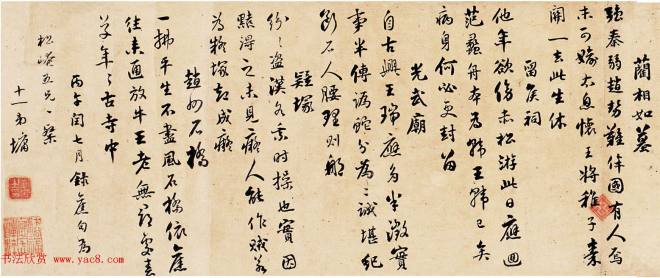 藺相如墓
強秦弱趙勢難侔國有人焉
未可婾太息懷王將稚子秦
關一去此生休
留侯祠
他年欲傍赤松游此日應迴
范蠡舟本為韓王韓已矣
病身何必更封留
光武廟
自古興王瑞應多半徵實
事半傳訛蛇分為二誠堪紀
斷石人腰理則那
疑塚
紛紛盜漢名時操也實因
黠得之未見癡人能作賊若
為疑塚却成癡
趙州石橋
一拂平生不盡風石橋依舊
往來通放牛王老無尋處春
草年年古寺中
丙子閏七月錄舊句為
松五兄一粲
十一弟墉
书法欣赏
www.yac8.com